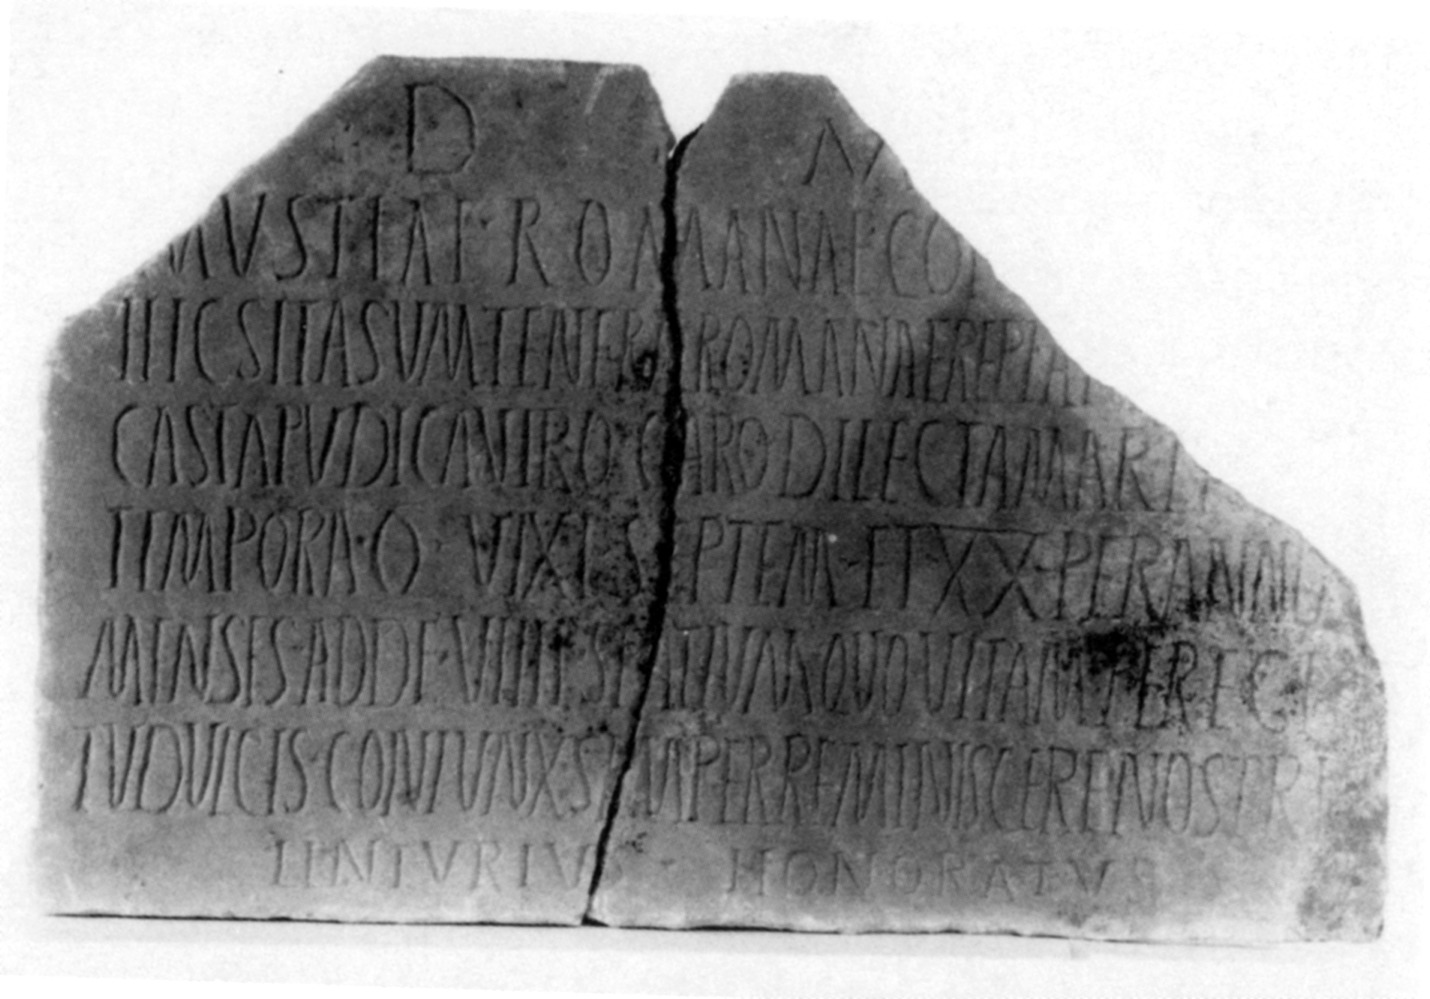 D M
MVSTIAE·ROMANAE·CO
HIC SITA SUM·TENERA ROMANA EREPTA
CASTA PUDICA VIRO CARO·DILECTA MARI
TEMPORA·O· VIXI SEPTEM·ET XX·PER ANNU
MENSES·ADDE·VIIII·SPATIUM QUO VITAM PEREGI
TU DULCIS·CONIUNX SEMPER REMINISCERE NOSTRI
LENTVRIVS HONORATVS